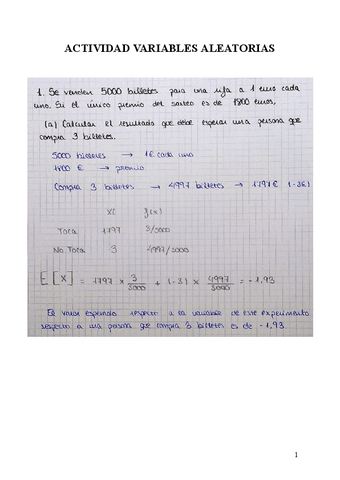 ACTIVIDAD VARIABLES ALEATORIAS
1. Se venden 5000 billetes para una rifa a 1 euro cada
uno. Si el único premio del sorteo es de 1800 euros,
(a) Calcular el resultado que debe esperar una persona que
compra 3 billetes.
5000 billetes → 1€ cada uno
1800 € → premio
Compra 3 billetes → 4997 billetes → 1797€ (-3€)
xi f(x)
Toca 1797 3/5000
No Toca 3 4997/5000
E[x] = 1797 × 3/5000 + (-3) × 4997/5000 = -1,93
El valor esperado respecto a la variable de este experimento
respecto a una persona que compra 3 billetes es de -1,93.
1